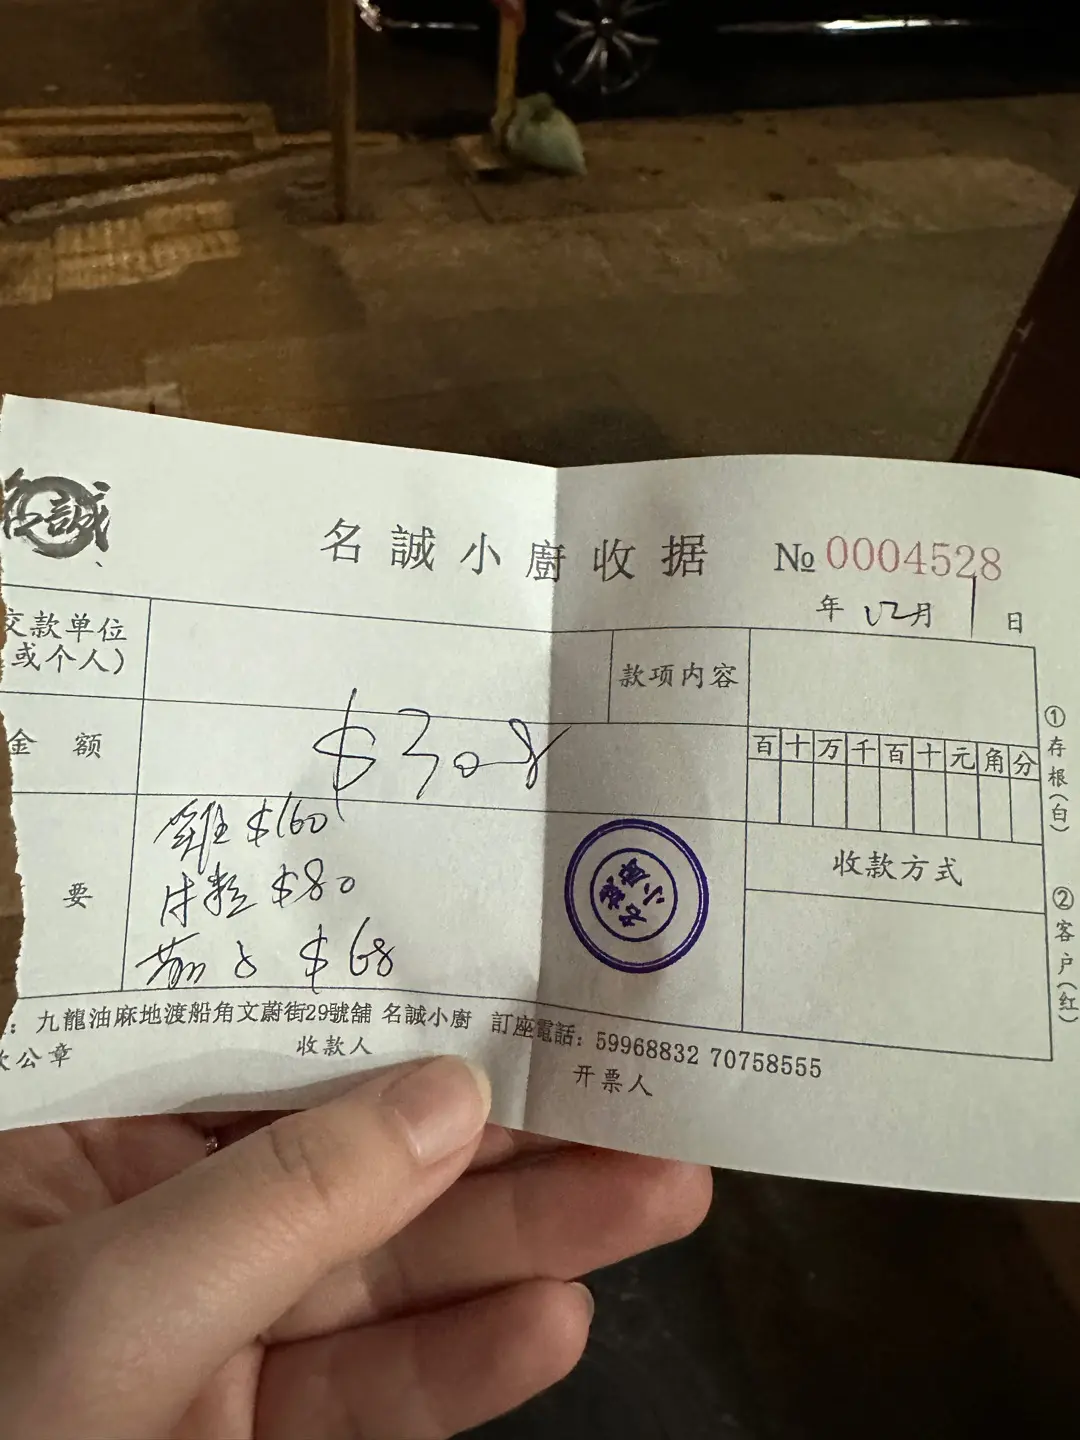 名誠
名誠小廚收据 № 0004528
年 12月 1 日
交款单位
（或个人）
款项内容
金额
$308
百 十 万 千 百 十 元 角 分
要
雞 $160
牛粒 $80
茄子 $68
名誠
小廚
收款方式
①存根（白）
②客户（红）
：九龍油麻地渡船角文蔚街29號舖 名誠小廚 訂座電話：59968832 70758555
公章
收款人
开票人